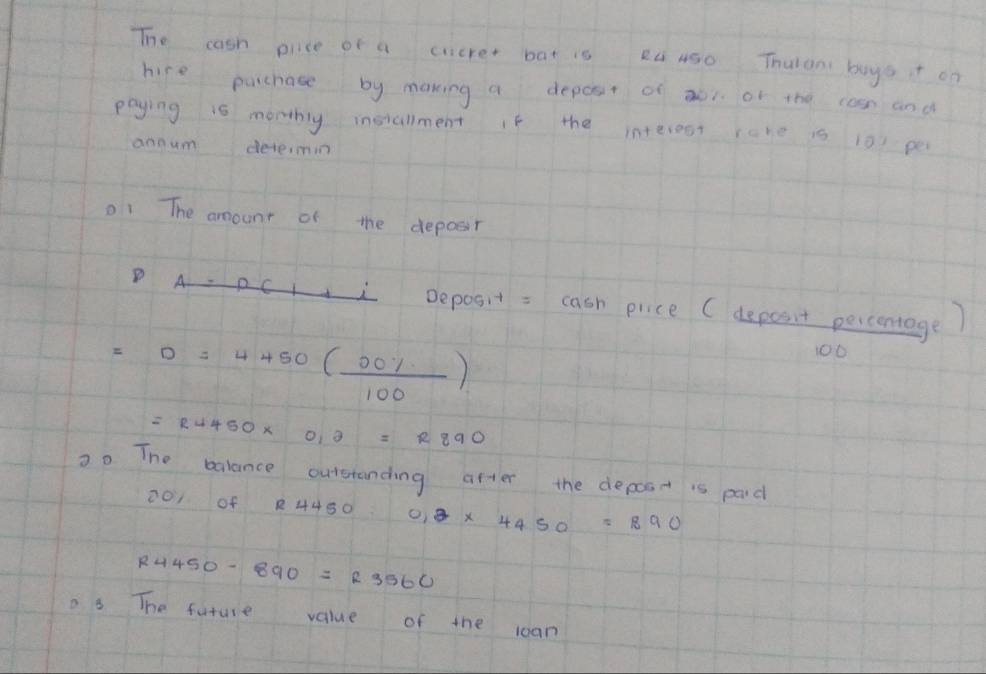 The cash price of a cricket bat is R4 450 Thulani buys it on
hire purchase by making a deposit of 20% of the cash and
paying is monthly installment if the interest rate is 10% per
annum determin
2 1 The amount of the deposit
Deposit = cash price ( deposit percentage / 100 )
= D = 4 450 ( 20% / 100 )
= R4450 x 0,2 = R890
2 2 The balance outstanding after the deposit is paid
20% of R4450 0,2 x 4450 = 890
R4450 - 890 = R3560
2 3 The future value of the loan